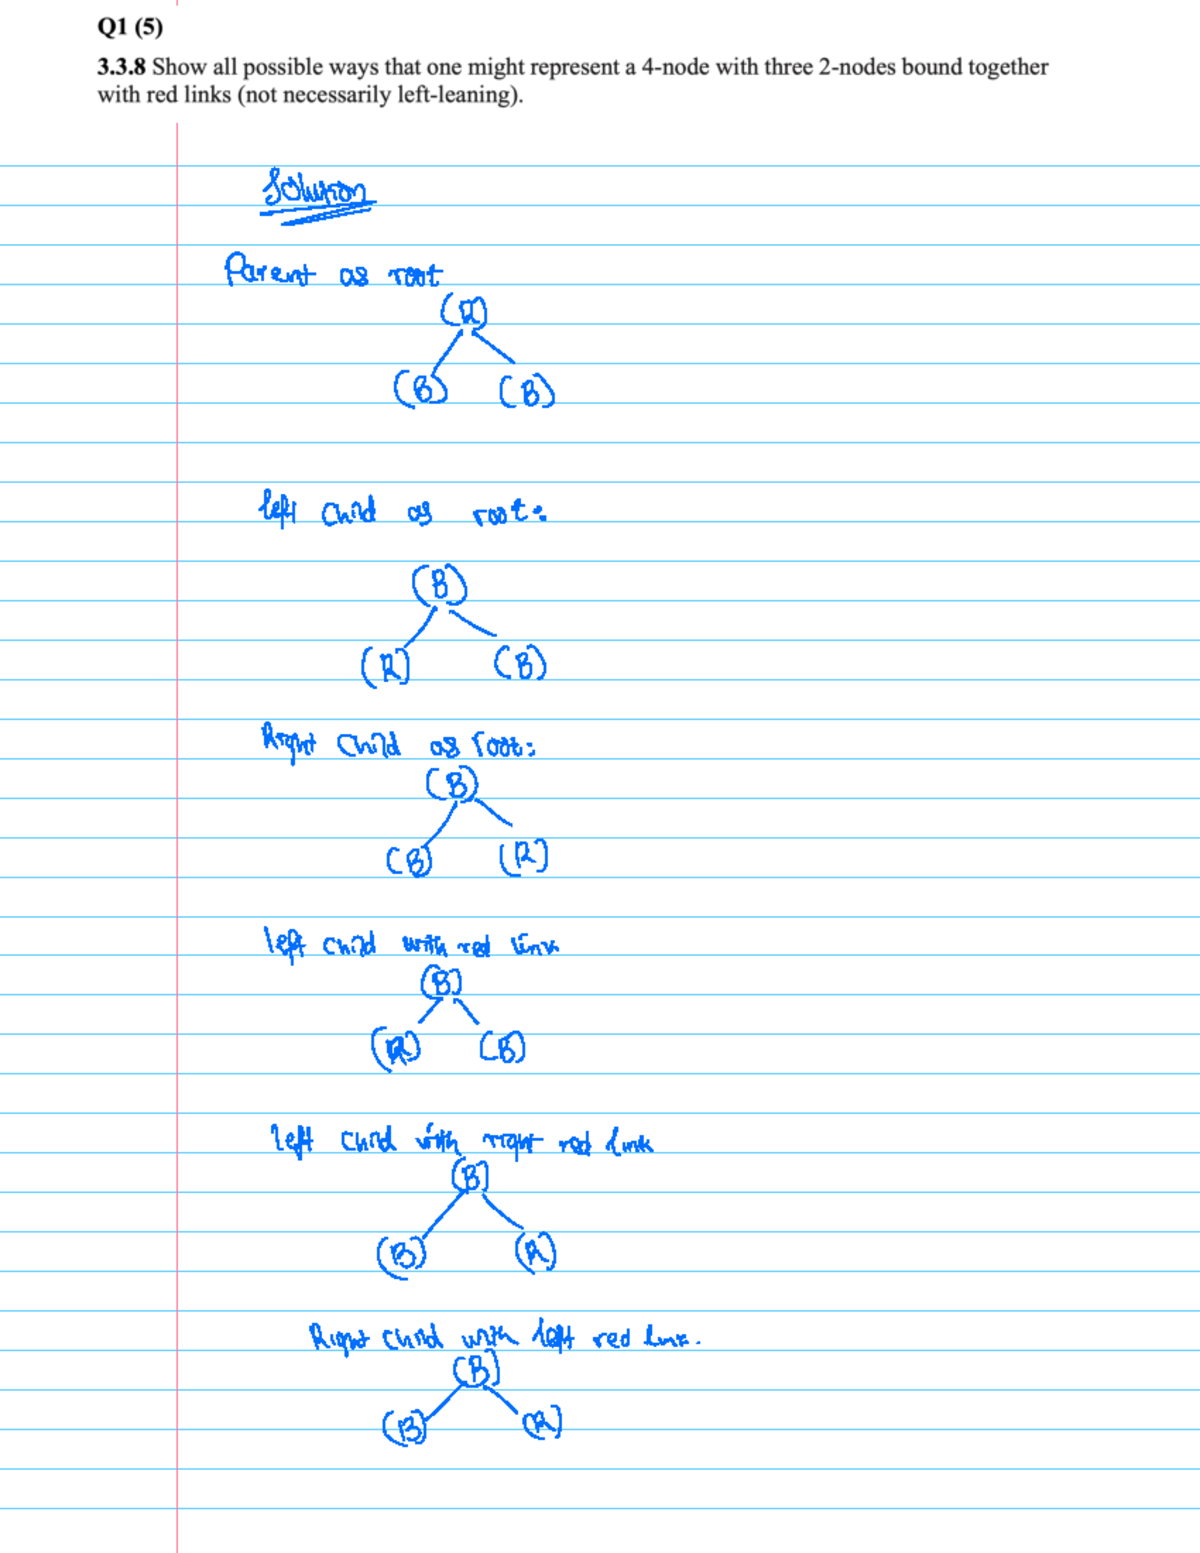 Q1 (5)
3.3.8 Show all possible ways that one might represent a 4-node with three 2-nodes bound together
with red links (not necessarily left-leaning).
Solution
Parent as root
(R)
(B) (B)
left child as root:
(B)
(R) (B)
Right child as root:
(B)
(B) (R)
left child with red link
(B)
(R) (B)
left child with right red link
(B)
(B) (R)
Right child with left red link.
(B)
(B) (R)